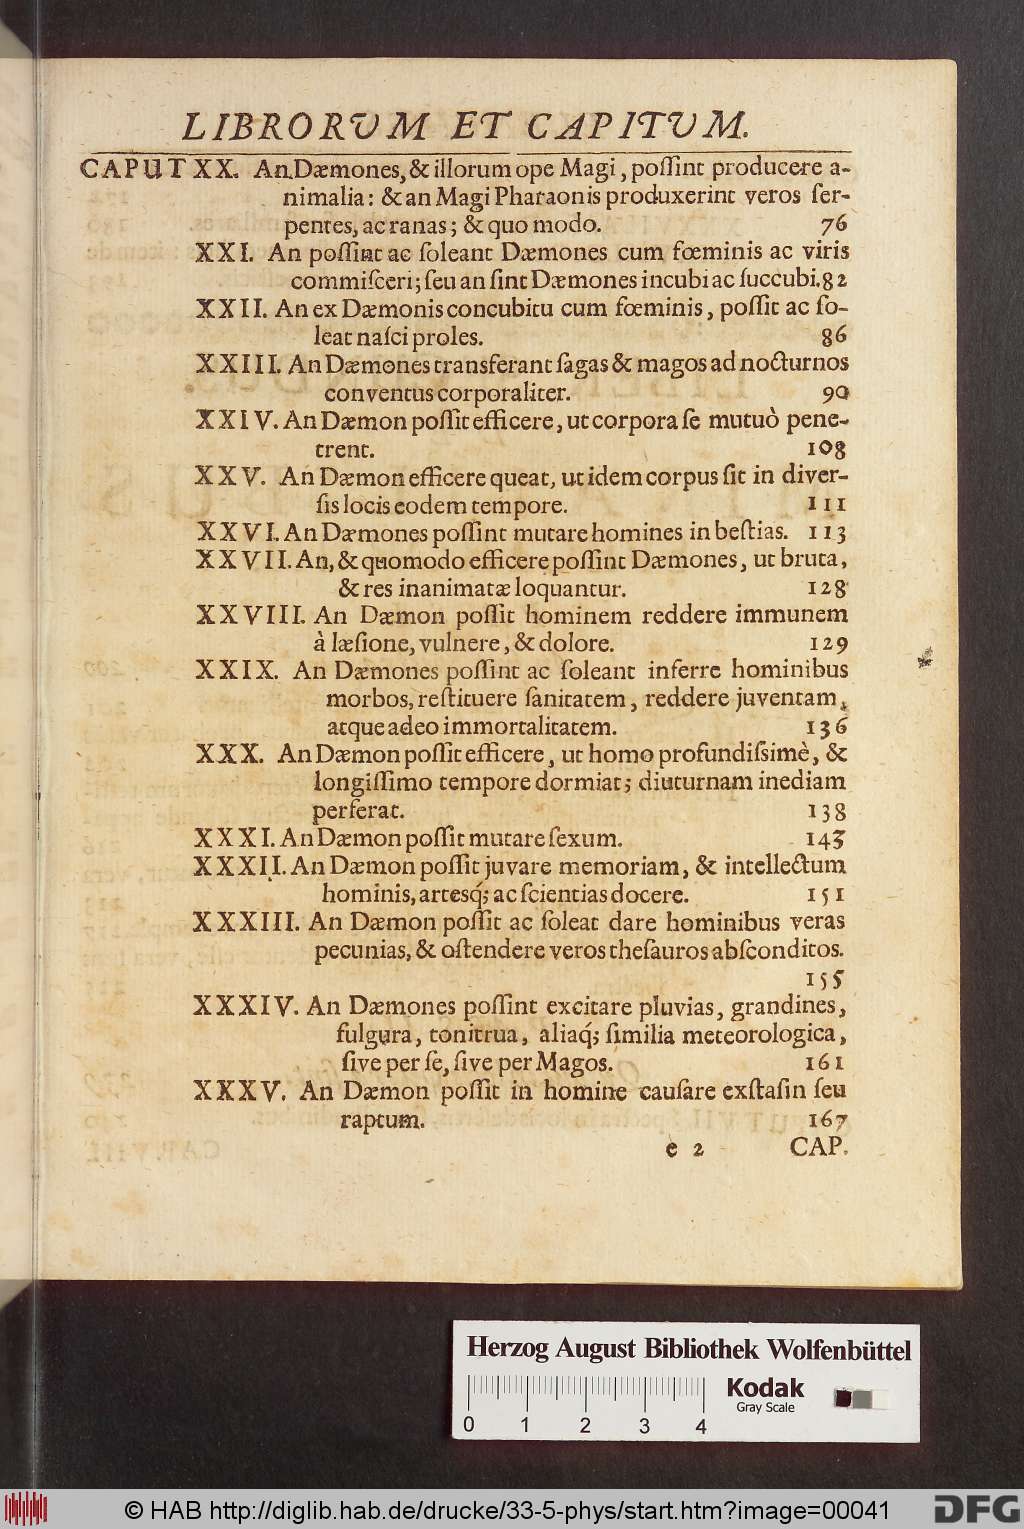 LIBRORVM ET CAPITVM.
CAPUT XX. An Dæmones, & illorum ope Magi, poſſint producere a-
nimalia: & an Magi Pharaonis produxerint veros ſer-
pentes, ac ranas; & quo modo. 76
XXI. An poſſint ac ſoleant Dæmones cum fœminis ac viris
commiſceri; ſeu an ſint Dæmones incubi ac ſuccubi. 82
XXII. An ex Dæmonis concubitu cum fœminis, poſſit ac ſo-
leat naſci proles. 86
XXIII. An Dæmones transferant ſagas & magos ad nocturnos
conventus corporaliter. 90
XXIV. An Dæmon poſſit efficere, ut corpora ſe mutuò pene-
trent. 108
XXV. An Dæmon efficere queat, ut idem corpus ſit in diver-
ſis locis eodem tempore. 111
XXVI. An Dæmones poſſint mutare homines in beſtias. 113
XXVII. An, & quomodo efficere poſſint Dæmones, ut bruta,
& res inanimatæ loquantur. 128
XXVIII. An Dæmon poſſit hominem reddere immunem
à læſione, vulnere, & dolore. 129
XXIX. An Dæmones poſſint ac ſoleant inferre hominibus
morbos, reſtituere ſanitatem, reddere juventam,
atque adeo immortalitatem. 136
XXX. An Dæmon poſſit efficere, ut homo profundiſsimè, &
longiſſimo tempore dormiat; diuturnam inediam
perferat. 138
XXXI. An Dæmon poſſit mutare ſexum. 143
XXXII. An Dæmon poſſit juvare memoriam, & intellectum
hominis, artesq́; ac ſcientias docere. 151
XXXIII. An Dæmon poſſit ac ſoleat dare hominibus veras
pecunias, & oſtendere veros theſauros abſconditos.
155
XXXIV. An Dæmones poſſint excitare pluvias, grandines,
fulgura, tonitrua, aliaq́; ſimilia meteorologica,
ſive per ſe, ſive per Magos. 161
XXXV. An Dæmon poſſit in homine cauſare exſtaſin ſeu
raptum. 167
e 2 CAP.
Herzog August Bibliothek Wolfenbüttel
Kodak
Gray Scale
0 1 2 3 4
© HAB http://diglib.hab.de/drucke/33-5-phys/start.htm?image=00041
DFG